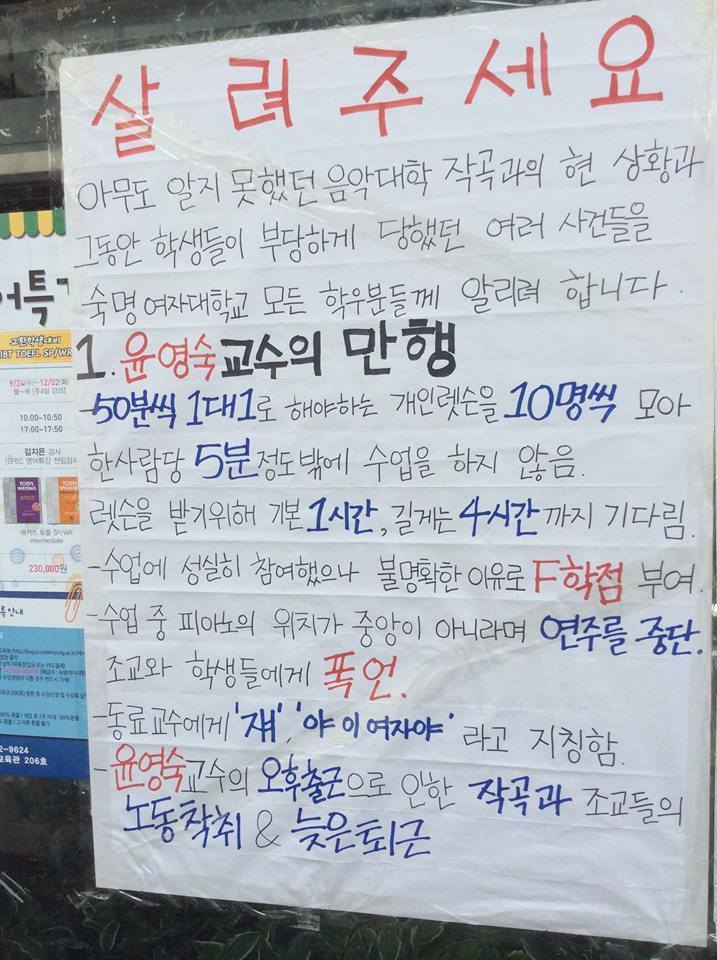 살려주세요
아무도 알지 못했던 음악대학 작곡과의 현 상황과
그동안 학생들이 부당하게 당했던 여러 사건들을
숙명여자대학교 모든 학우분들께 알리려 합니다.
1. 윤영숙교수의 만행
-50분씩 1대1로 해야하는 개인렛슨을 10명씩 모아
한사람당 5분정도밖에 수업을 하지 않음.
렛슨을 받기위해 기본 1시간, 길게는 4시간까지 기다림.
-수업에 성실히 참여했으나 불명확한 이유로 F학점 부여.
-수업 중 피아노의 위치가 중앙이 아니라며 연주를 중단.
조교와 학생들에게 폭언.
-동료교수에게 '쟤', '야 이 여자야' 라고 지칭함.
-윤영숙교수의 오후출근으로 인한 작곡과 조교들의
노동착취 & 늦은퇴근
어특
iBT TOEFL SP/WR
9/24(수)~12/02(화)
월~목 [주4일 강의]
10:00~10:50
17:00~17:50
김지은 강사
TOEFL
WRITING
TOEFL
intermediate
230,000원
2-9624
교육관 206호